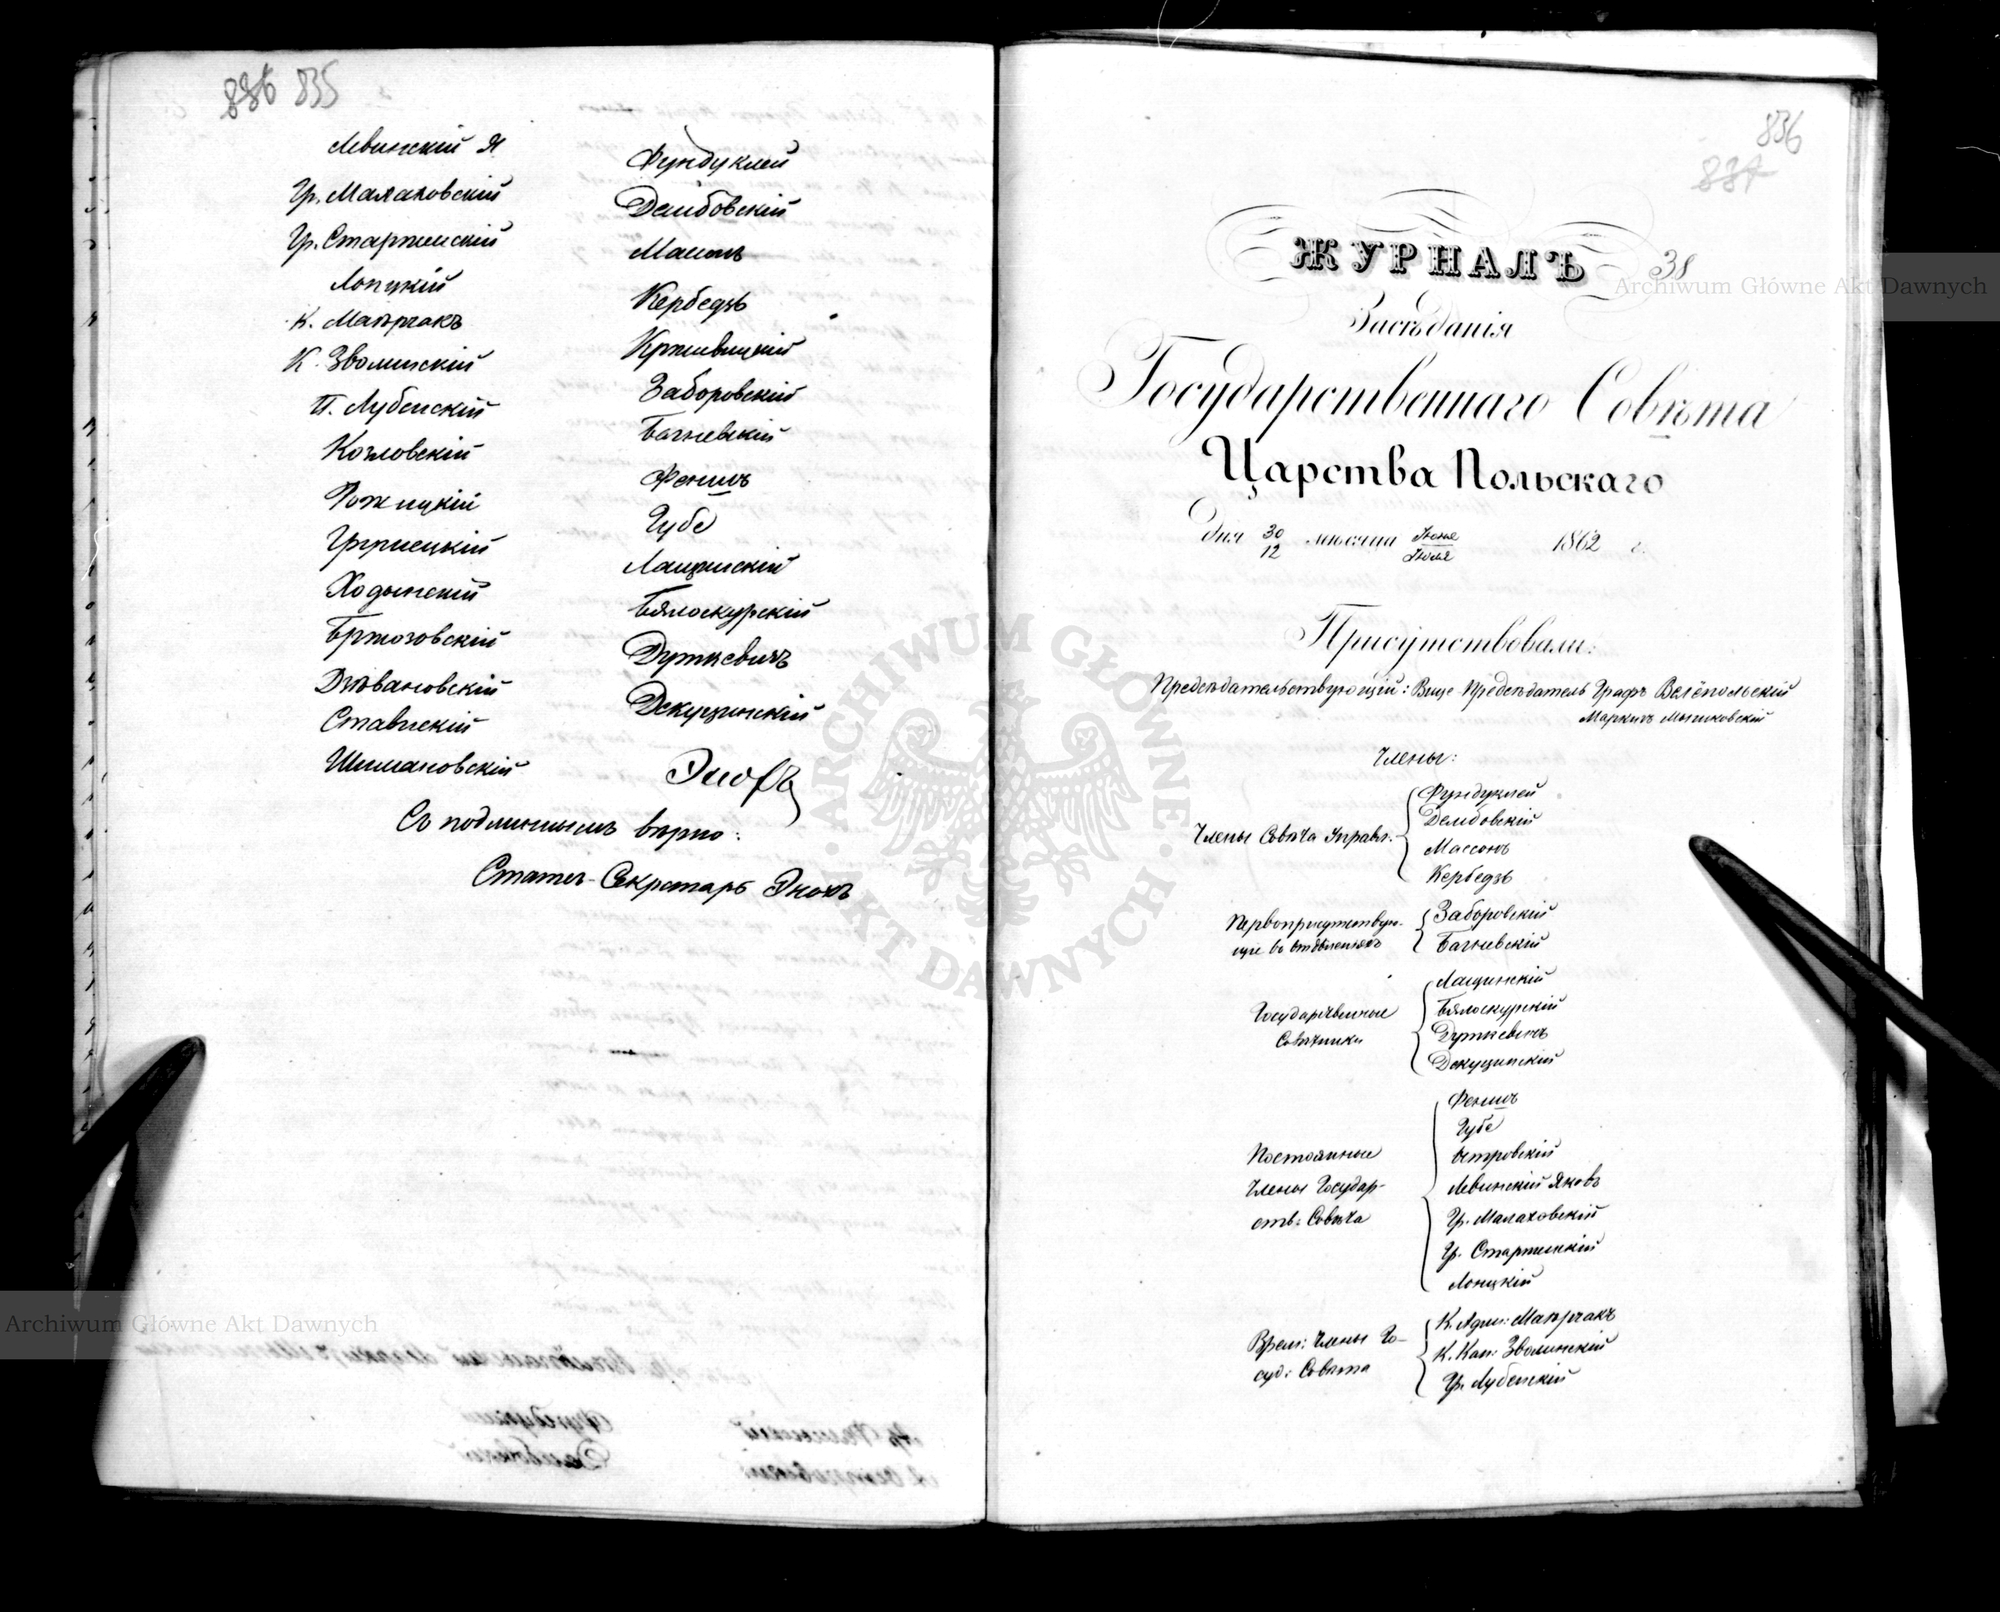 886 835
Левинскій Я
Гр. Малаховскій
Гр. Старженскій
Лопцкій
К. Маѣрчакъ
К. Зволинскій
Гр. Лубенскій
Козловскій
Рожицкій
Ходынскій
Бржозовскій
Дзѣвановскій
Ставискій
Шимановскій
Фундуклей
Дембовскій
Масонъ
Кербедзъ
Крживицкій
Заборовскій
Багневскій
Феншъ
Губе
Лащинскій
Бялоскурскій
Дуткевичъ
Декуцинскій
Энохъ
Съ подлиннымъ вѣрно:
Статсъ-Секретарь Энохъ
836
887
ЖУРНАЛЪ 38
Засѣданія
Государственнаго Совѣта
Царства Польскаго
дня 30/12 мѣсяца Іюня/Іюля 1862 г.
Присутствовали:
Предсѣдательствующій: Вице-Предсѣдатель Графъ Велёпольскій
Маркизъ Мышковскій
Члены:
Члены Совѣта Управл.
Фундуклей
Дембовскій
Массонъ
Кербедзъ
Первоприсутствую-
щіе въ отдѣленіяхъ
Заборовскій
Багневскій
Государственные
Совѣтники
Лащинскій
Бялоскурскій
Дуткевичъ
Декуцинскій
Постоянные
Члены Государ-
ств: Совѣта
Феншъ
Губе
Островскій
Левинскій Яковъ
Гр. Малаховскій
Гр. Старженскій
Лопцкій
Врем: Члены Го-
суд: Совѣта
К. Адм: Маѣрчакъ
К. Кан: Зволинскій
Гр. Лубенскій
Archiwum Główne Akt Dawnych
Archiwum Główne Akt Dawnych
ARCHIWUM GŁÓWNE · AKT DAWNYCH ·